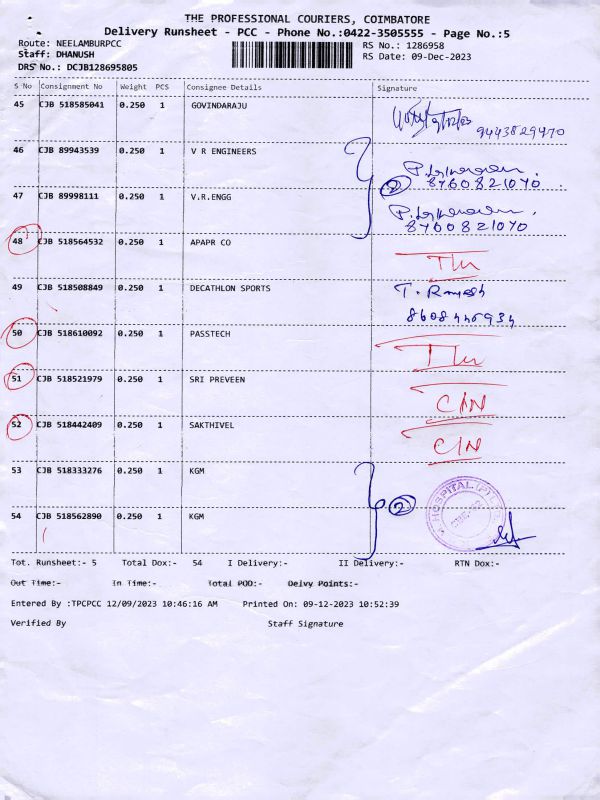 THE PROFESSIONAL COURIERS, COIMBATORE
Delivery Runsheet - PCC - Phone No.:0422-3505555 - Page No.:5
Route: NEELAMBURPCC RS No.: 1286958
Staff: DHANUSH RS Date: 09-Dec-2023
DRS No.: DCJB128695805
S No Consignment No Weight PCS Consignee Details Signature
45 CJB 518585041 0.250 1 GOVINDARAJU
9443829470
46 CJB 89943539 0.250 1 V R ENGINEERS
2 8760821070
47 CJB 89998111 0.250 1 V.R.ENGG
8760821070
48 CJB 518564532 0.250 1 APAPR CO
49 CJB 518508849 0.250 1 DECATHLON SPORTS T. Ramesh
8608446934
50 CJB 518610092 0.250 1 PASSTECH
51 CJB 518521979 0.250 1 SRI PREVEEN C/N
52 CJB 518442409 0.250 1 SAKTHIVEL C/N
53 CJB 518333276 0.250 1 KGM
2 HOSPITAL (P)
54 CJB 518562890 0.250 1 KGM
Tot. Runsheet:- 5 Total Dox:- 54 I Delivery:- II Delivery:- RTN Dox:-
Out Time:- In Time:- Total POD:- Delvy Points:-
Entered By :TPCPCC 12/09/2023 10:46:16 AM Printed On: 09-12-2023 10:52:39
Verified By Staff Signature